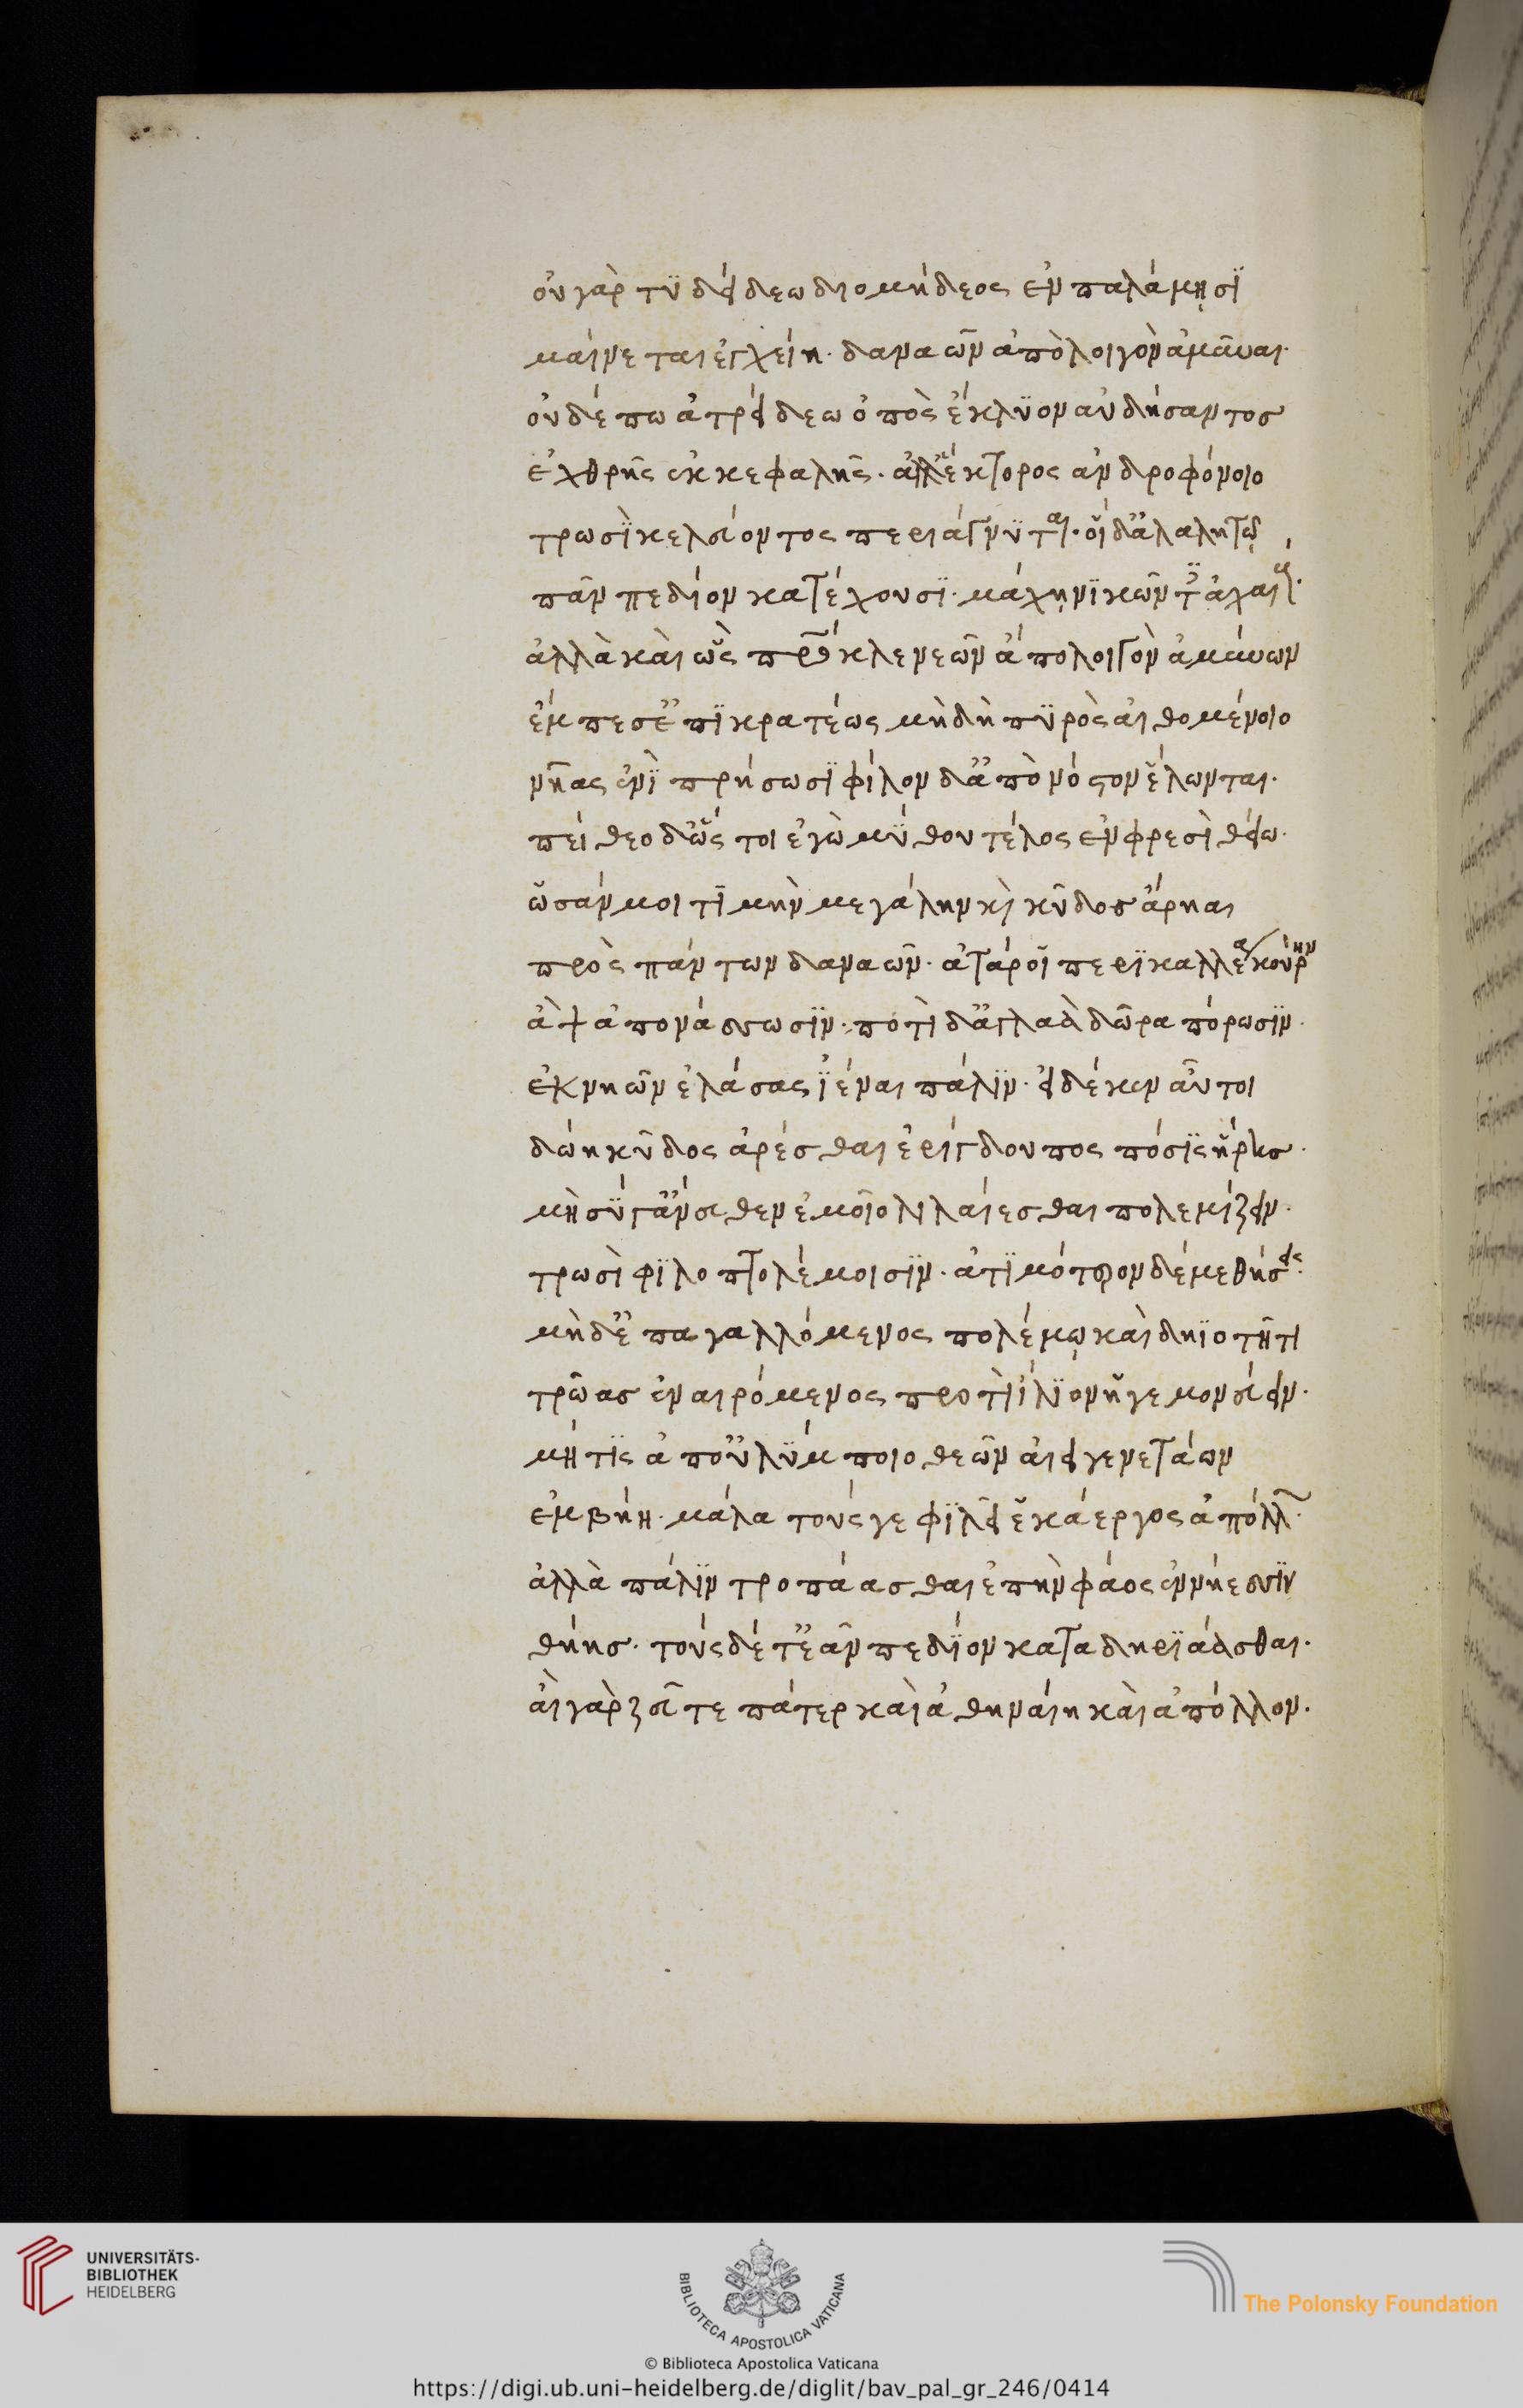 οὐ γὰρ τϋδείδεω διομήδεος ἐν παλάμῃσϊ
μαίνεται ἐγχείη· δαναῶν ἀπὸ λοιγὸν ἀμῦναι·
οὐδέ πω ἀτρείδεω ὀπὸς ἔκλϋον αὐδήσαντοσ
ἐχθρῆς ἐκ κεφαλῆς· ἀλλ' ἕκτορος ἀνδροφόνοιο
τρωσϊ κελεύοντος περιάγνϋται· οἳ δ' ἀλαλητῷ
πᾶν πεδίον κατέχουσϊ· μάχῃ νϊκῶντες ἀχαιούς·
ἀλλὰ καὶ ὣς πάτροκλε νεῶν ἄπο λοιγὸν ἀμύνων
ἔμπεσ' ἐπϊκρατέως μὴ δὴ πϋρὸς αἰθομένοιο
νῆας ἐνϊ πρήσωσϊ φίλον δ' ἀπὸ νόστον ἕλωνται·
πείθεο δ' ὥς τοι ἐγὼ μύθου τέλος ἐν φρεσὶ θείω·
ὡς ἄν μοι τϊμὴν μεγάλην κὶ κῦδοσ ἄρηαι
πρὸς πάντων δαναῶν· ἀτὰρ οἳ περϊκαλλέα κούρην
ἂψ ἀπονάσσωσϊν· ποτὶ δ' ἀγλαὰ δῶρα πόρωσϊν·
ἐκ νηῶν ἐλάσας ϊέναι πάλϊν· εἰ δέ κεν αὖ τοι
δώη κῦδος ἀρέσθαι ἐρίγδουπος πόσϊς ἥρησ·
μὴ σύ γ' ἄνευθεν ἐμοῖο λιλαίεσθαι πολεμίζειν·
τρωσὶ φϊλοπτολέμοισϊν· ἀτϊμότερον δέ με θήσεις·
μὴ δ' ἐπαγαλλόμενος πολέμῳ καὶ δηϊοτῆτι
τρῶασ ἐναιρόμενος προτὶ ἴλϊον ἡγεμονεύειν·
μή τϊς ἀπ' οὐλύμποιο θεῶν αἰειγενετάων
ἐμβήῃ· μάλα τούς γε φϊλεῖ ἑκάεργος ἀπόλλων·
ἀλλὰ πάλϊν τροπάασθαι ἐπὴν φάος ἐν νήεσσϊν
θήησ· τοὺς δέ τ' ἐᾶν πεδίον κάτα δηρϊάασθαι·
αἲ γὰρ ζεῦ τε πάτερ καὶ ἀθηναίη καὶ ἀπόλλον·
UNIVERSITÄTS-
BIBLIOTHEK
HEIDELBERG
BIBLIOTECA APOSTOLICA VATICANA
The Polonsky Foundation
© Biblioteca Apostolica Vaticana
https://digi.ub.uni-heidelberg.de/diglit/bav_pal_gr_246/0414